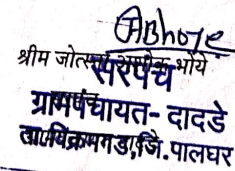 ABhoye
श्रीम जोत्सना अशोक भोये
सरपंच
ग्रामपंचायत- दादडे
ता.विक्रमगड,जि.पालघर